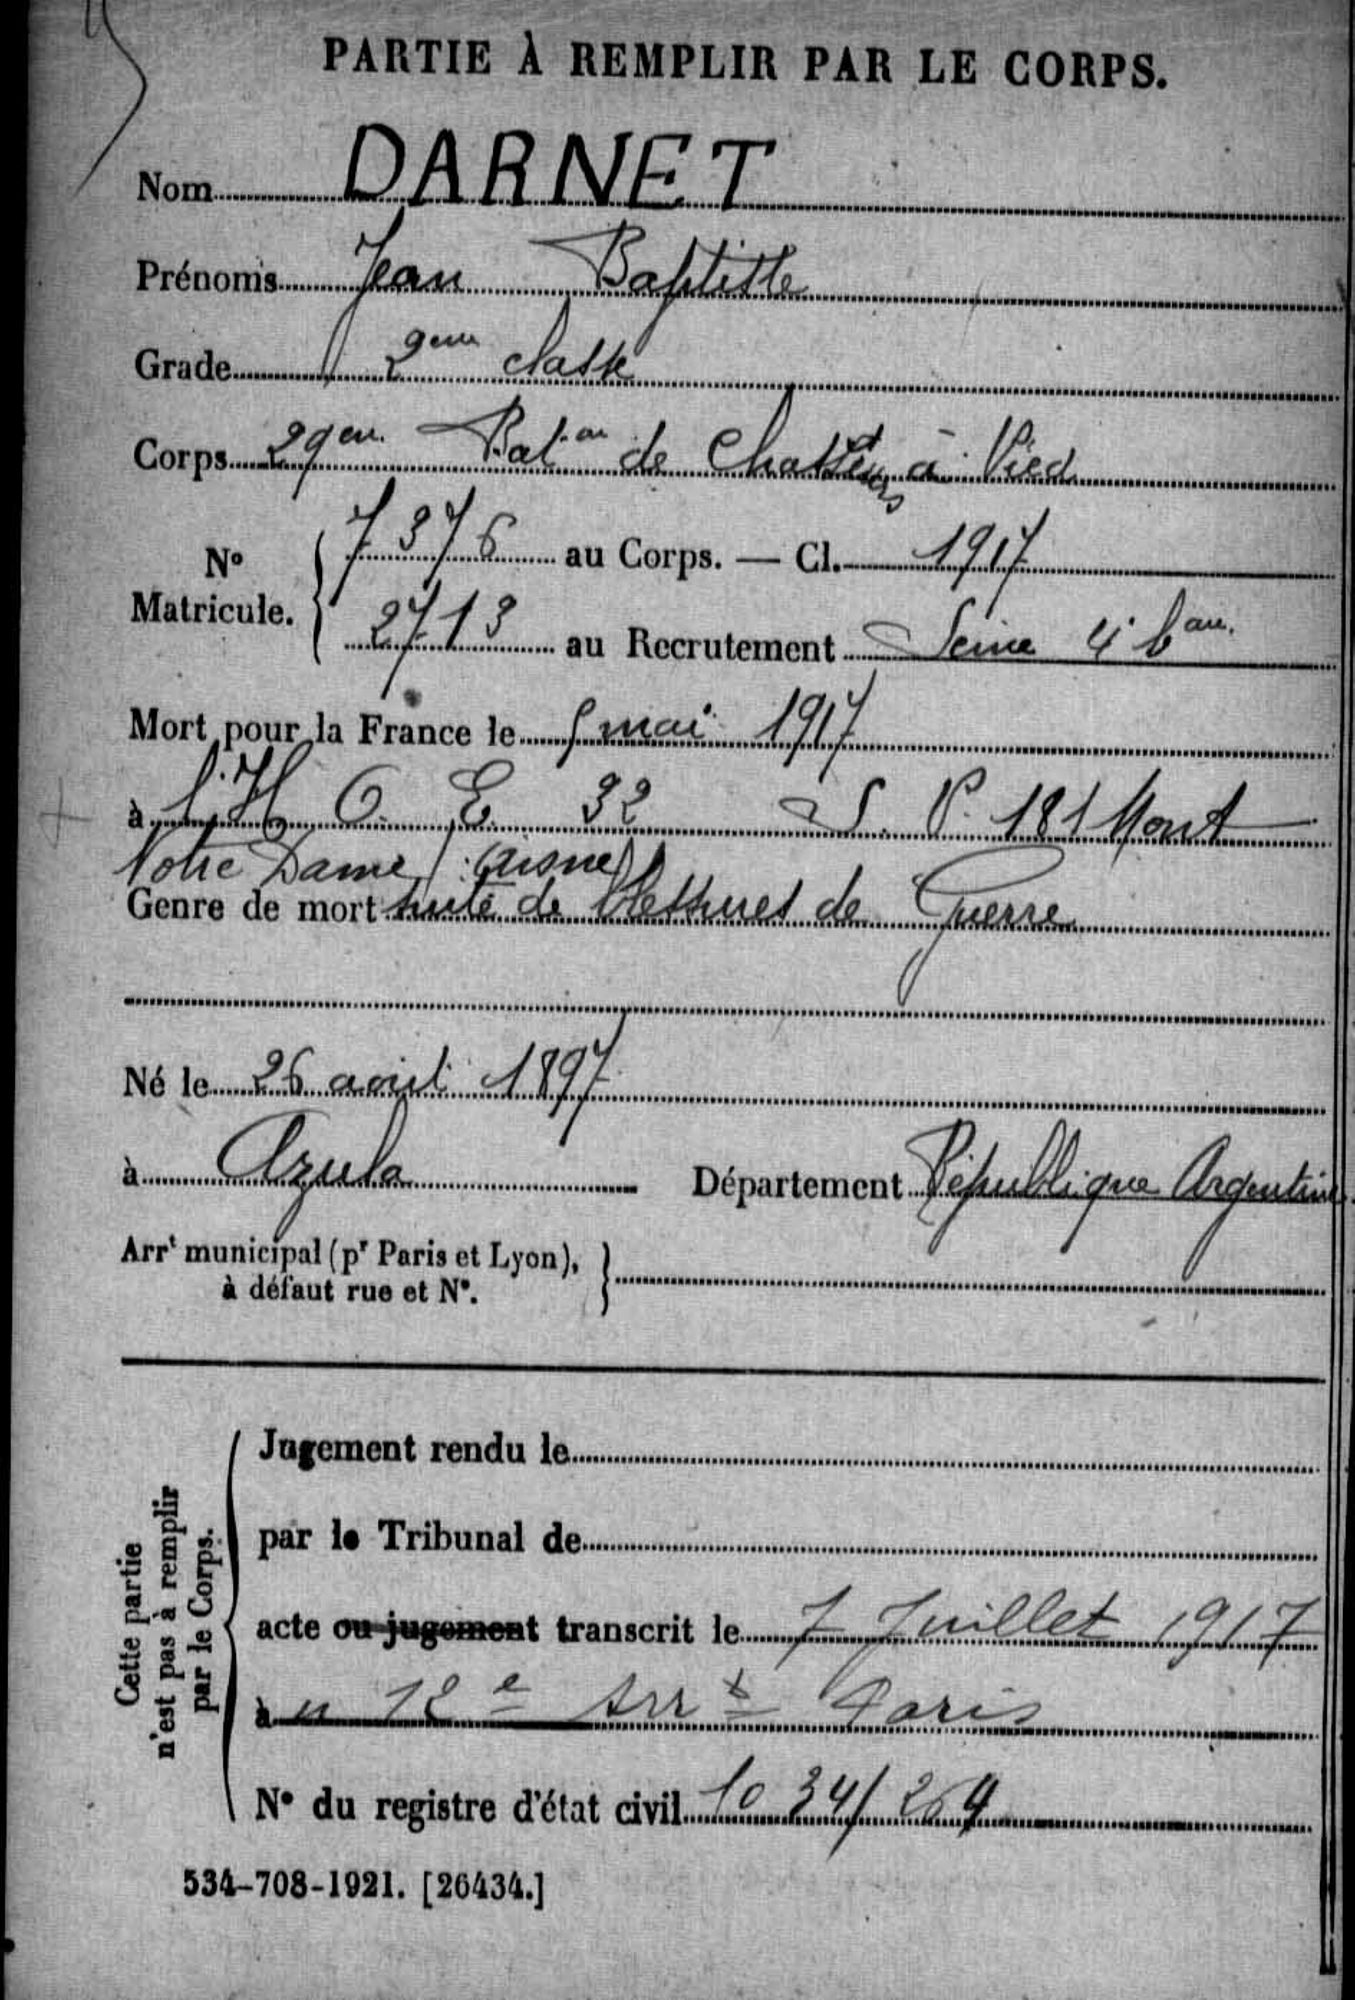 PARTIE À REMPLIR PAR LE CORPS.
Nom DARNET
Prénoms Jean Baptiste
Grade 2eme classe
Corps 29em Batон de Chasseurs à Pied
No Matricule. 7376 au Corps. — Cl. 1917
2713 au Recrutement Seine 4e bau.
Mort pour la France le 5 mai 1917
à l'H O. E. 32 S. P. 181 Mont
Notre Dame (Aisne)
Genre de mort suite de blessures de Guerre
Né le 26 août 1897
à Azula Département République Argentine
Arrt municipal (pr Paris et Lyon),
à défaut rue et No.
Cette partie
n'est pas à remplir
par le Corps.
Jugement rendu le
par le Tribunal de
acte ou jugement transcrit le 7 Juillet 1917
à 12e Arrt Paris
No du registre d'état civil 1034/264
534-708-1921. [26434.]